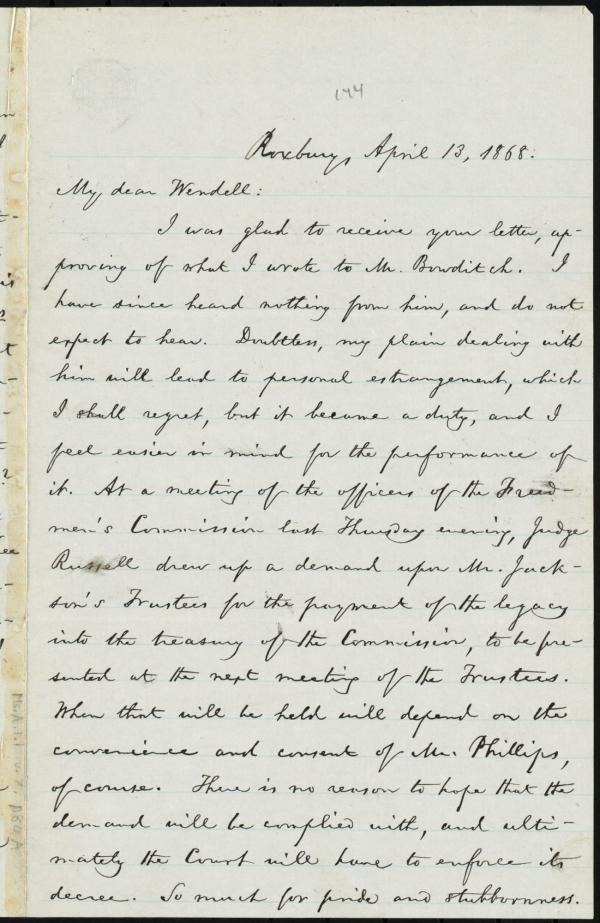 144
Roxbury, April 13, 1868.
My dear Wendell:
I was glad to receive your letter, ap-
proving of what I wrote to Mr. Bowditch. I
have since heard nothing from him, and do not
expect to hear. Doubtless, my plain dealing with
him will lead to personal estrangement, which
I shall regret, but it became a duty, and I
feel easier in mind for the performance of
it. At a meeting of the officers of the Freed-
men's Commission last Thursday evening, Judge
Russell drew up a demand upon Mr. Jack-
son's Trustees for the payment of the legacy
into the treasury of the Commission, to be pre-
sented at the next meeting of the Trustees.
When that will be held will depend on the
convenience and consent of Mr. Phillips,
of course. There is no reason to hope that the
demand will be complied with, and ulti-
mately the Court will have to enforce its
decree. So much for pride and stubbornness.
Ms.A.1.1 v.7 p.80A